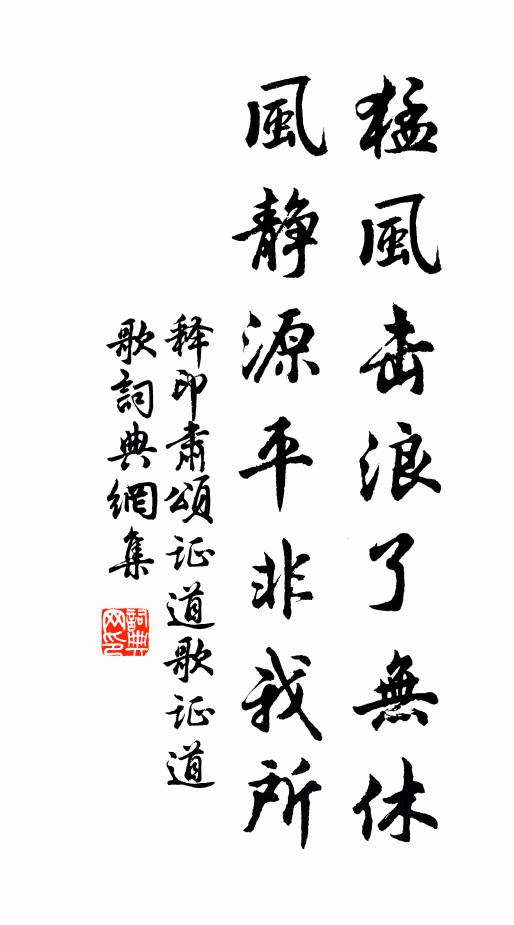 猛風击浪了無休
風静源平非我所
释印肃頌证道歌证道
歌詞典網集
詞典网印